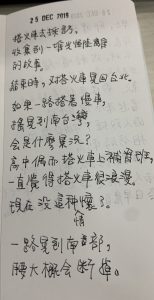 25 DEC 2019
搭火車去採訪。
收集到一堆光怪陸離
的故事。
結束時,又搭火車晃回台北。
如果一路搭慢車,
搖晃到南台灣,
會是什麼景況?
高中偶而搭火車上補習班,
一直覺得搭火車很浪漫。
現在沒這種情懷了。
一路晃到南部,
腰大概會斷掉。